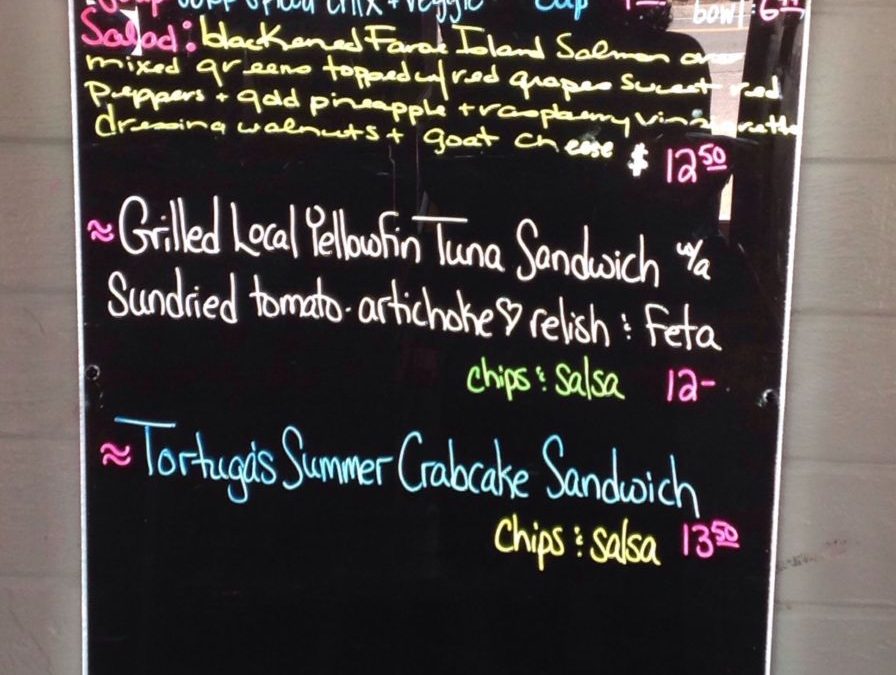 Soup chix + veggie cup bowl: 6
Salad: blackened Faroe Island Salmon over
mixed greens topped w/ red grapes sweet red
Peppers + gold pineapple + raspberry vinaigrette
dressing walnuts + goat cheese $ 12.50
≈ Grilled Local Yellowfin Tuna Sandwich w/a
Sundried tomato. artichoke♡ relish & Feta
chips & salsa 12-
≈ Tortuga's Summer Crabcake Sandwich
Chips & salsa 13.50